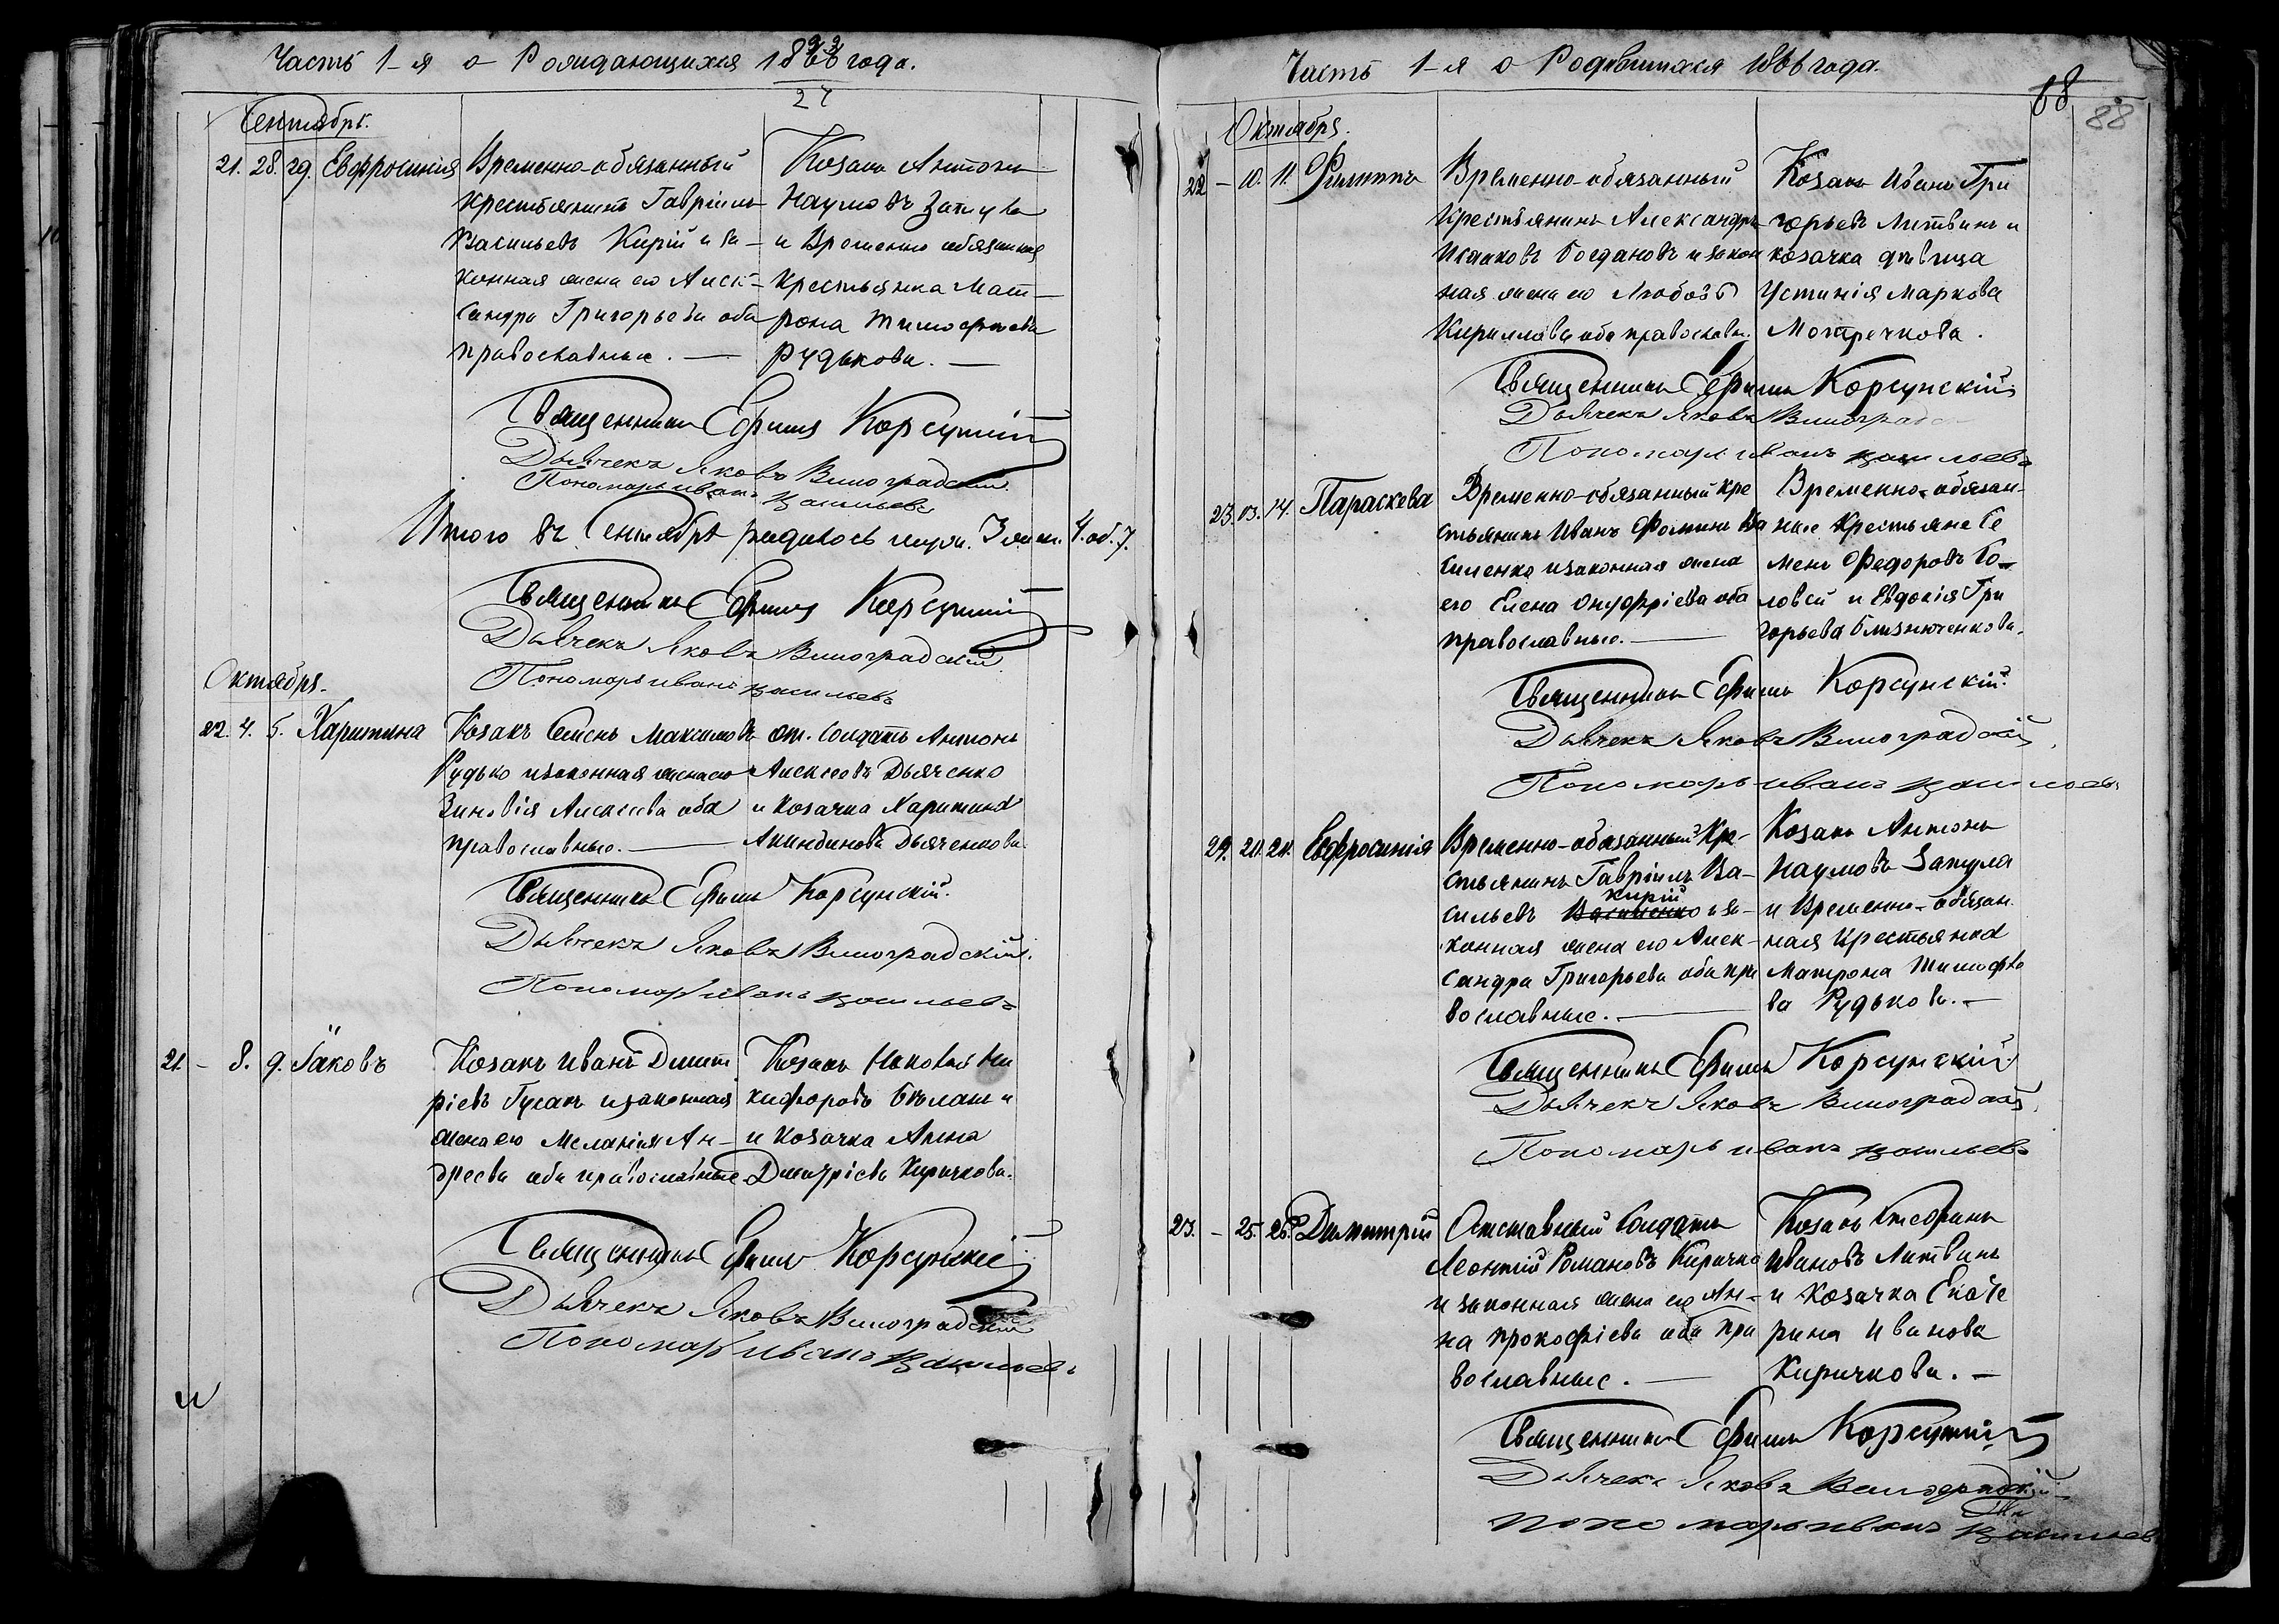 Часть 1-я о Рождающихся 1866 года.
27
Сентябрь.
21. 28. 29. Евфросинія
Временно-обязанный
крестьянинъ Гавріилъ
Васильевъ Кирій и за-
конная жена его Алек-
сандра Григорьева оба
православные. —
Козакъ Антонъ
Наумовъ Запула
и Временно обязанная
крестьянка Мат-
рона Тимофеева
Рудькова. —
Священникъ Ефимъ Корсунскій
Дьячекъ Яковъ Виноградскій.
Пономарь иванъ Васильевъ
Итого въ Сентябрѣ родилось муж. 3 жен. 4. об. 7.
Священникъ Ефимъ Корсунскій
Дьячекъ Яковъ Виноградскій.
Пономарь иванъ Васильевъ
Октября.
22. 4. 5. Харитина
Козакъ Семенъ Максимовъ
Рудько и законная жена его
Зиновія Алексеева оба
православные. —
от. Солдатъ Антонъ
Алексеевъ Дьяченко
и Козачка Харитина
Акиндинова Дьяченкова.
Священникъ Ефимъ Корсунскій.
Дьячекъ Яковъ Виноградскій.
Пономарь иванъ Васильевъ
21. - 8. 9. Іаковъ
Козакъ Иванъ Димит
ріевъ Гусакъ и законная
жена его Меланія Ан-
дреева оба православные
Козакъ Ни
кифоровъ и
и Козачка Анна
Димитріева Киричкова.
Священникъ Ефимъ Корсунскій
Дьячекъ Яковъ Виноградскій
Пономарь Иванъ Васильевъ
Часть 1-я о Родившихся 1866 года.
68
88
Октября.
22 - 10. 11. Филиппъ
Временно-обязанный
крестьянинъ Александръ
Исааковъ Богдановъ и закон
ная жена его Любовь
Кириллова оба православн.
Козакъ Иванъ Гри
горьевъ Литвинъ и
козачка дѣвица
Устинія Маркова
Мотречкова.
Священникъ Ефимъ Корсунскій
Дьячекъ Яковъ Виноградск
Пономарь иванъ Васильевъ
23. 13. 14. Параскева
Временно-обязанный кре
стьянинъ Иванъ Фоминъ Ва
силенко и законная жена
его Елена Онуфріева оба
православные. —
Временно-обязан-
ные Крестьяне Се
менъ Федоровъ Го-
ловей и Евдокія Гри
горьева Близнюченкова.
Священникъ Ефимъ Корсунскій.
Дьячекъ Яковъ Виноградскій
Пономарь иванъ Васильевъ
24. 20. 21. Евфросинія
Временно-обязанный Кре-
стьянинъ Гавріилъ Ва-
Кирій
сильевъ Василенко и за-
конная жена его Алек-
сандра Григорьева оба пра
вославные. —
Козакъ Антонъ
Наумовъ Запула
и Временно-обязан
ная Крестьянка
Матрона Тимофее
ва Рудькова. —
Священникъ Ефимъ Корсунскій
Дьячекъ Яковъ Виноградскій
Пономарь иванъ Васильевъ
23. - 25. 26. Димитрій
Отставный Солдатъ
Леонтій Романовъ Киричко
и законная жена его Ан-
на Прокофіева оба пра
вославные. —
Козакъ Стефанъ
Ивановъ Литвинъ
и Козачка Екате
рина Иванова
Киричкова. —
Священникъ Ефимъ Корсунскій
Дьячекъ Яковъ Виноградскій
пономарь иванъ Васильевъ